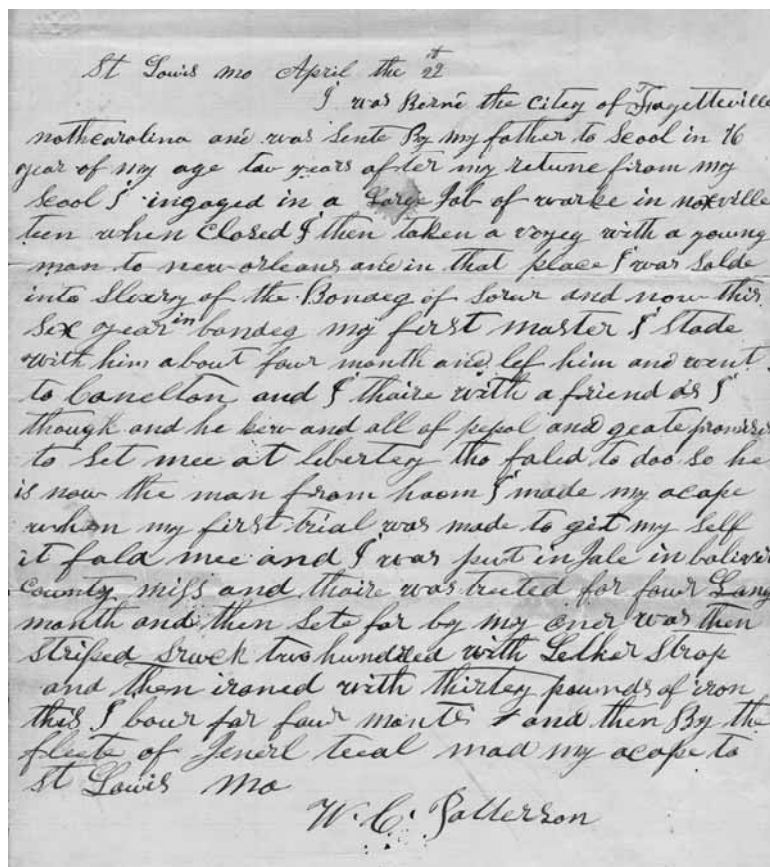 St Louis mo April the 22
I was Borne the citey of Fayetteville
nothcarolina and was sente By my father to Scool in 16
year of my age tow years after my retune from my
Scool I ingaged in a Large Job of warke in noxville
teen when closed I then taken a voyeg with a young
man to new orleans and in that place I was Solde
into Slavery of the Bondeg of and now this
Sex year in bondeg my first master I Stade
with him about four month and lef him and went
to Canelton and I thaire with a friend as I
though and he and all of pepol and geate promises
to Set mee at libertey tho faled to doo So he
is now the man from hoom I made my acape
when my first trial was made to git my Self
it fald mee and I was put in Jale in
County miss and thaire was treted for four Lang
month and then Sete for by my oner was then
striped Sruck two hundred with Strap
and then ironed with thirtey pounds of iron
this I bour for four and then By the
fleete of Jenerl teeal mad my acape to
St Louis Mo
W. C. Patterson